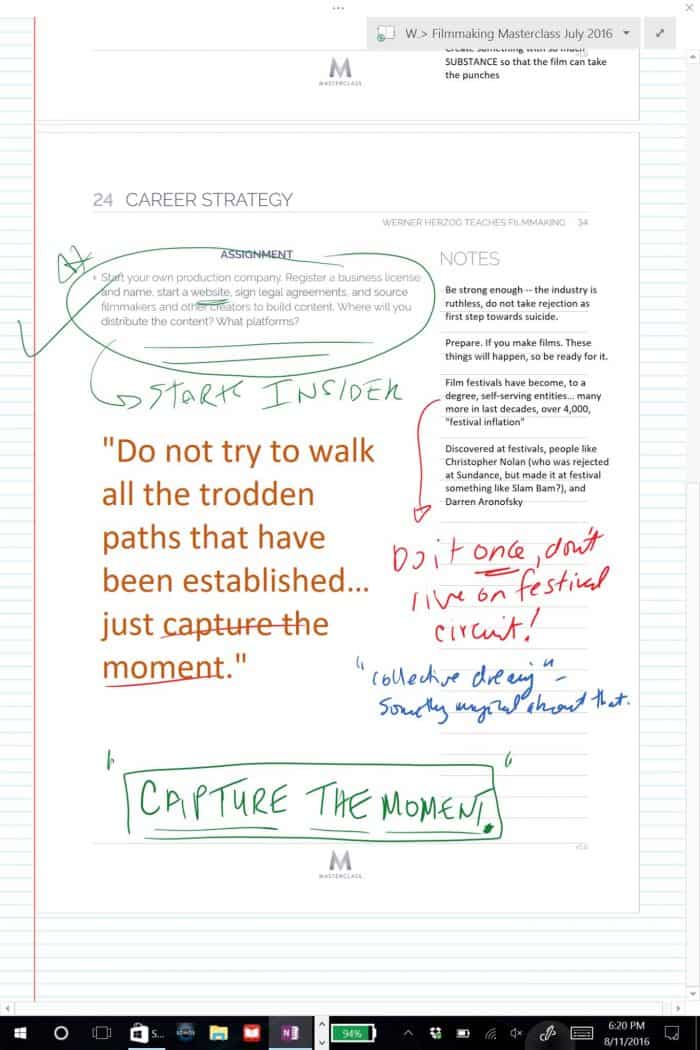 W.> Filmmaking Masterclass July 2016
Create something with so much
SUBSTANCE so that the film can take
the punches
M
MASTERCLASS
24 CAREER STRATEGY
WERNER HERZOG TEACHES FILMMAKING 34
ASSIGNMENT
• Start your own production company. Register a business license
and name, start a website, sign legal agreements, and source
filmmakers and other creators to build content. Where will you
distribute the content? What platforms?
NOTES
Be strong enough -- the industry is
ruthless, do not take rejection as
first step towards suicide.
Prepare. If you make films. These
things will happen, so be ready for it.
Film festivals have become, to a
degree, self-serving entities... many
more in last decades, over 4,000,
"festival inflation"
Discovered at festivals, people like
Christopher Nolan (who was rejected
at Sundance, but made it at festival
something like Slam Bam?), and
Darren Aronofsky
A+
START INSIDER
"Do not try to walk
all the trodden
paths that have
been established...
just capture the
moment."
Do it once, don't
live on festival
circuit!
"collective dreaming" –
Something magical about that.
"CAPTURE THE MOMENT."
M
MASTERCLASS
S...
N
94%
6:20 PM
8/11/2016